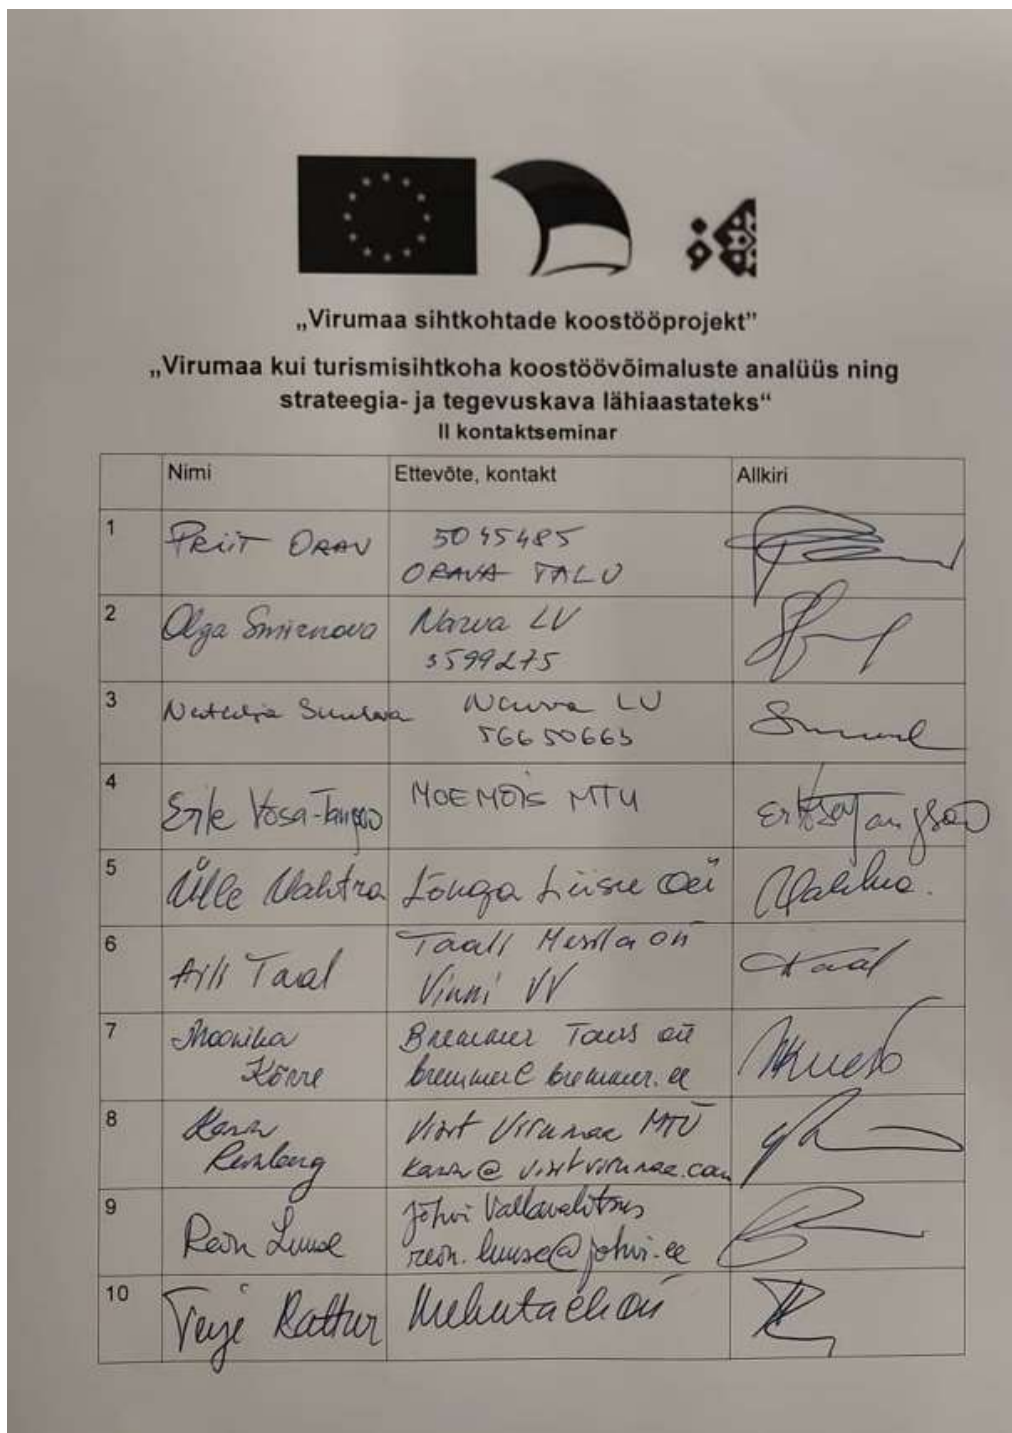 „Virumaa sihtkohtade koostööprojekt"
„Virumaa kui turismisihtkoha koostöövõimaluste analüüs ning
strateegia- ja tegevuskava lähiaastateks“
II kontaktseminar
Nimi Ettevõte, kontakt Allkiri
1 PRIIT ORAV 5045485
ORAVA TALU
2 Olga Smirnova Narva LV
3599275
3 Natalja Narva LV
56650663
4 Erle Vosa-Tangsoo MOEMÕIS MTÜ
5 Ülle Vahtra Lõuga Liisu OÜ
6 Aili Taal Taali OÜ
Vinni VV
7 Moonika
Kõrre
Bremmer Tours OÜ
bremmer@bremmer.ee
8 Visit Virumaa MTÜ
@visitvirumaa.com
9 Rein Luuse Jõhvi Vallavalitsus
rein.luuse@johvi.ee
10 Terje Rattur